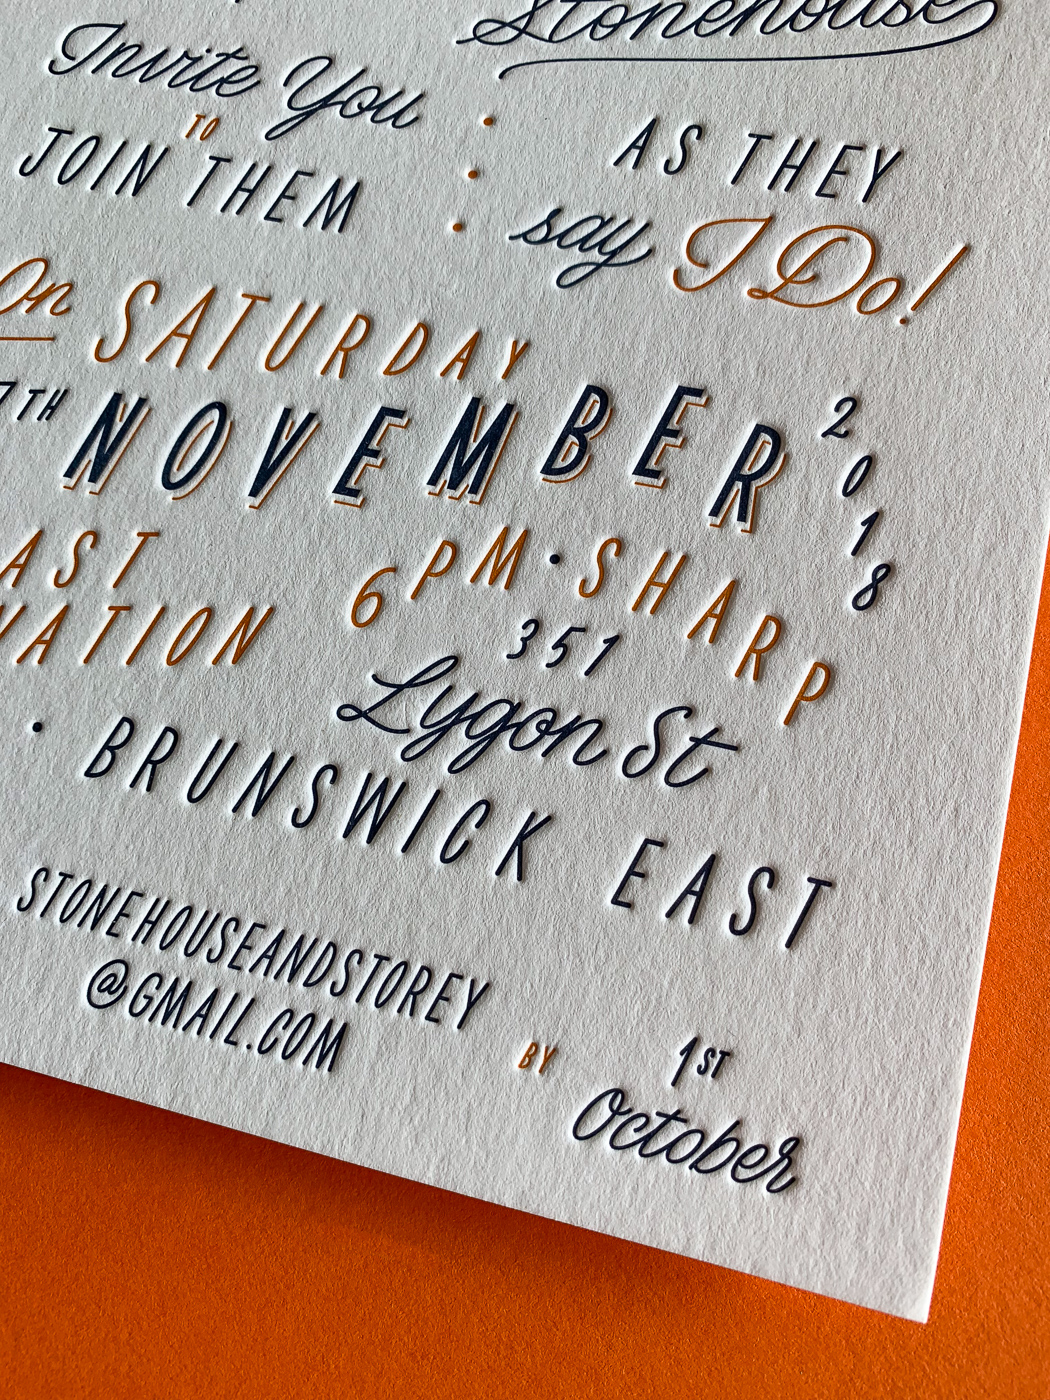 Stonehouse
Invite You
TO
JOIN THEM
AS THEY
say I Do!
On SATURDAY
7TH NOVEMBER 2018
6PM • SHARP
351
Lygon St
• BRUNSWICK EAST
STONEHOUSEANDSTOREY
@GMAIL.COM
BY
1ST
October